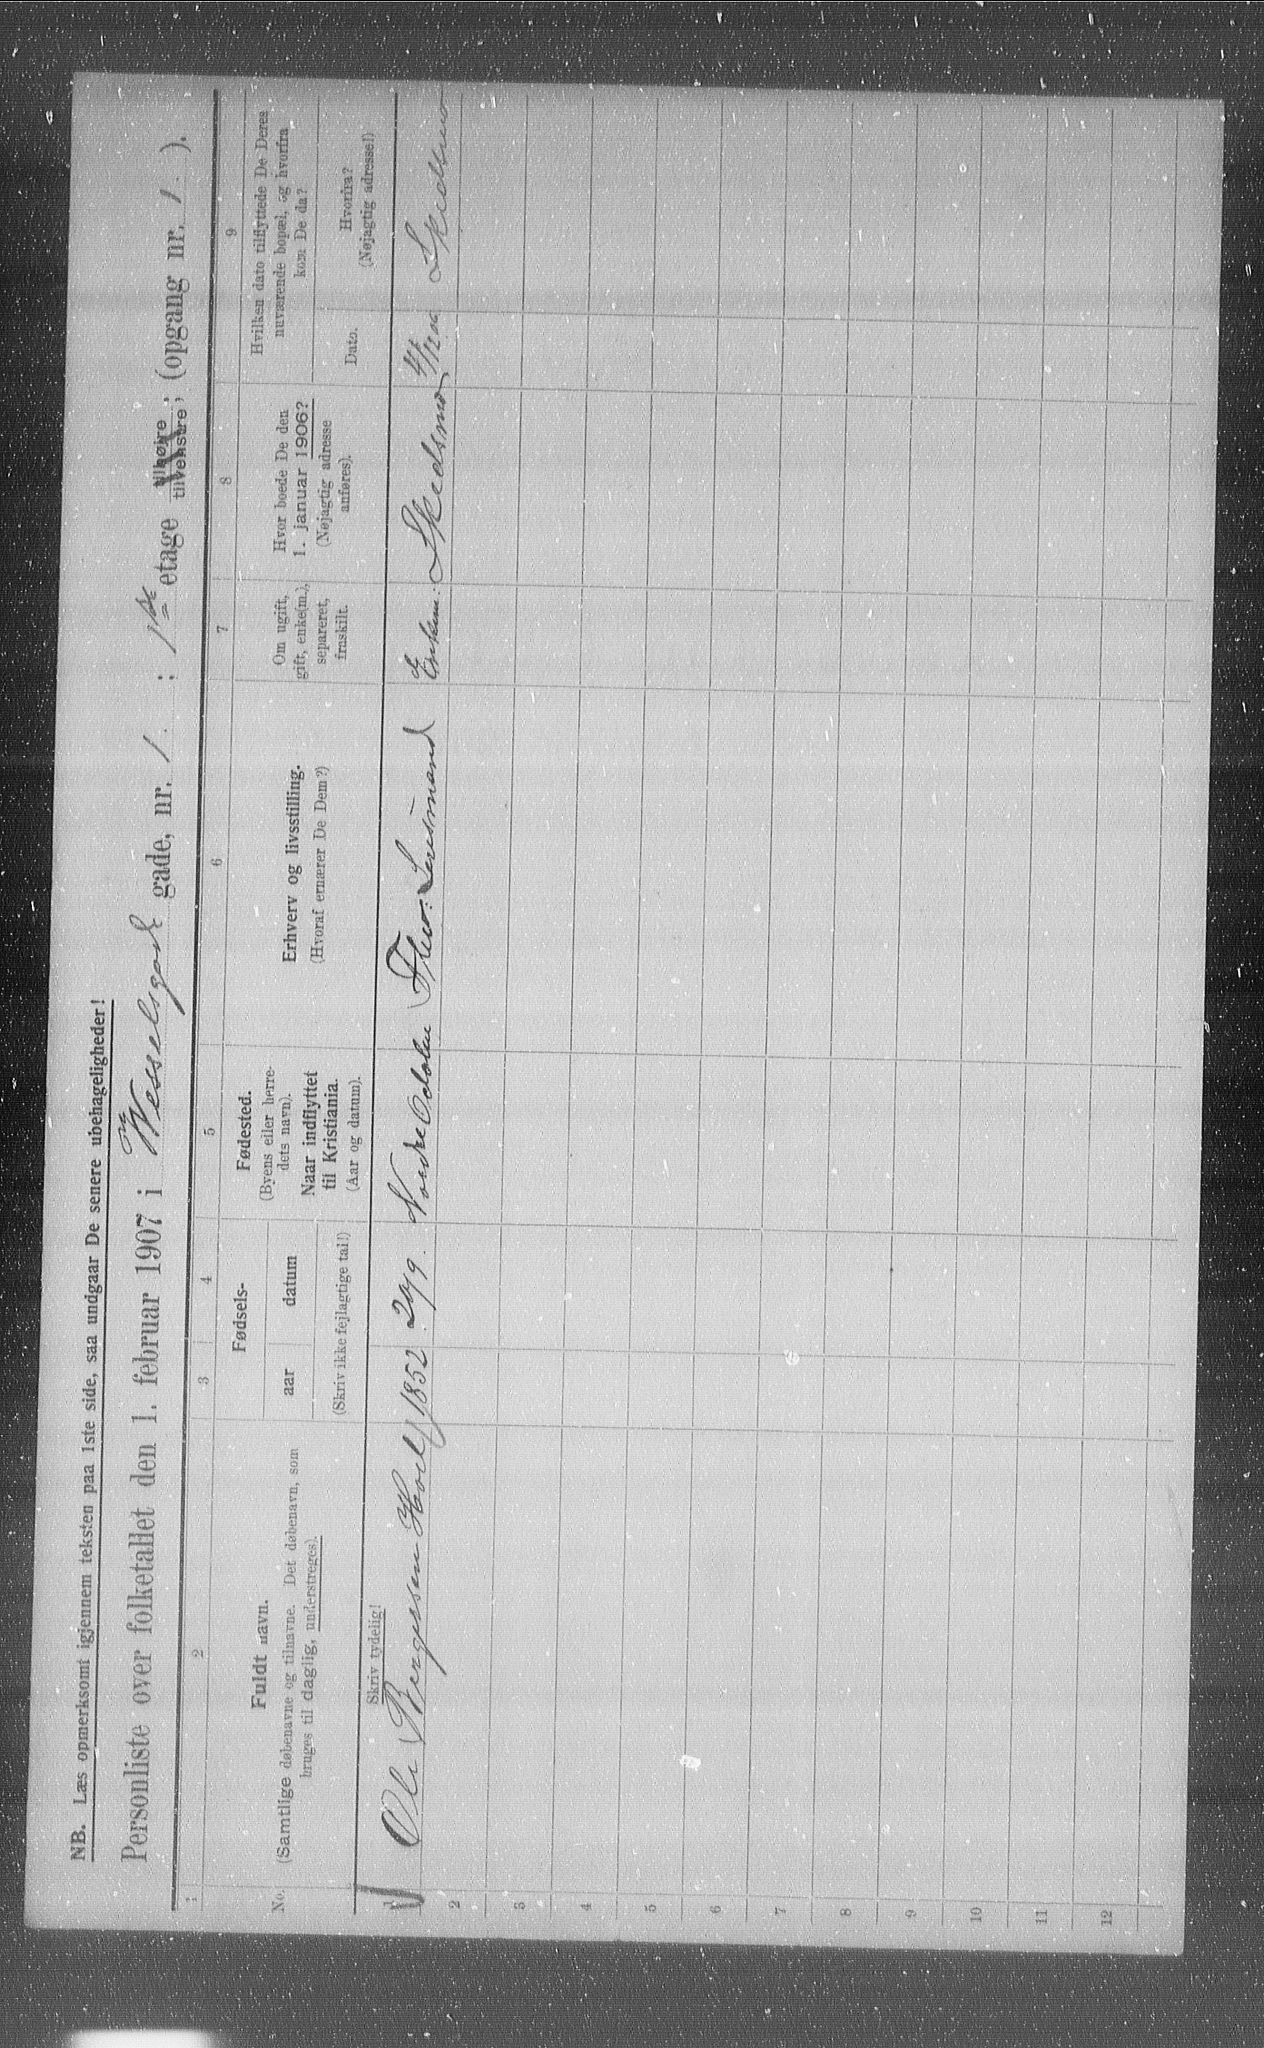 NB. Læs opmerksomt igjennem teksten paa 1ste side, saa undgaar De senere ubehageligheder!
Personliste over folketallet den 1. februar 1907 i Wesselsgade gade, nr. 1. : 1ste etage tilhøire tilvenstre, (opgang nr. 1. ).
1 2 3 4 5 6 7 8 9
No.
Fuldt navn.
(Samtlige døbenavne og tilnavne. Det døbenavn, som
bruges til daglig, understreges).
Skriv tydelig!
Fødsels-
aar datum
(Skriv ikke fejlagtige tal!)
Fødested.
(Byens eller herre-
dets navn).
Naar indflyttet
til Kristiania.
(Aar og datum).
Erhverv og livsstilling.
(Hvoraf ernærer De Dem?)
Om ugift,
gift, enke(m.),
separeret,
fraskilt.
Hvor boede De den
1. januar 1906?
(Nøjagtig adresse
anføres).
Hvilken dato tilflyttede De Deres
nuværende bopæl, og hvorfra
kom De da?
Dato.
Hvorfra?
(Nøjagtig adresse!)
1 Ole Bergersen Hoel 1852 20/9. Nordre Odalen Lensmand Enkem. Skedsmo
2
3
4
5
6
7
8
9
10
11
12